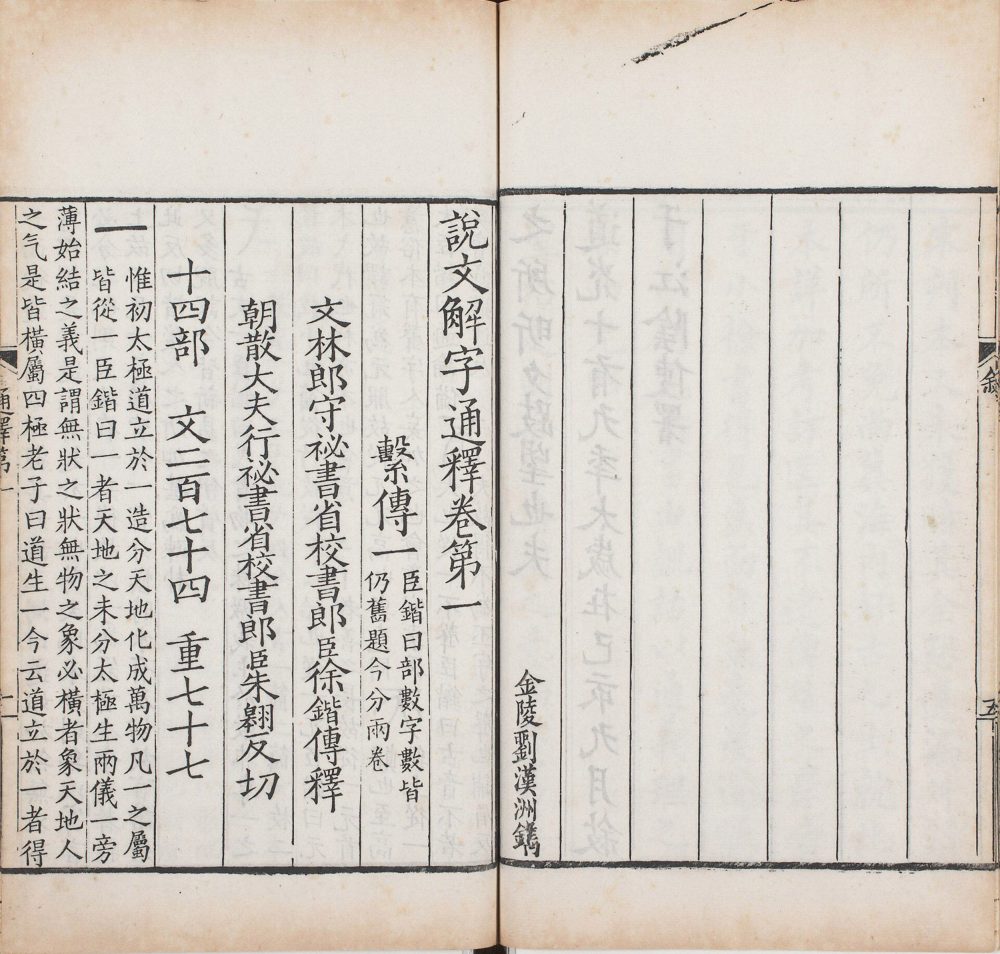 金陵劉漢洲鐫
說文解字通釋卷第一
繫傳一
臣鍇曰部數字數皆
仍舊題今分兩卷
文林郎守祕書省校書郎臣徐鍇傳釋
朝散大夫行祕書省校書郎臣朱翱反切
十四部　文二百七十四　重七十七
一
惟初太極道立於一造分天地化成萬物凡一之屬
皆從一臣鍇曰一者天地之未分太極生兩儀一旁
薄始結之義是謂無狀之狀無物之象必橫者象天地人
之气是皆橫屬四極老子曰道生一今云道立於一者得
通釋第一